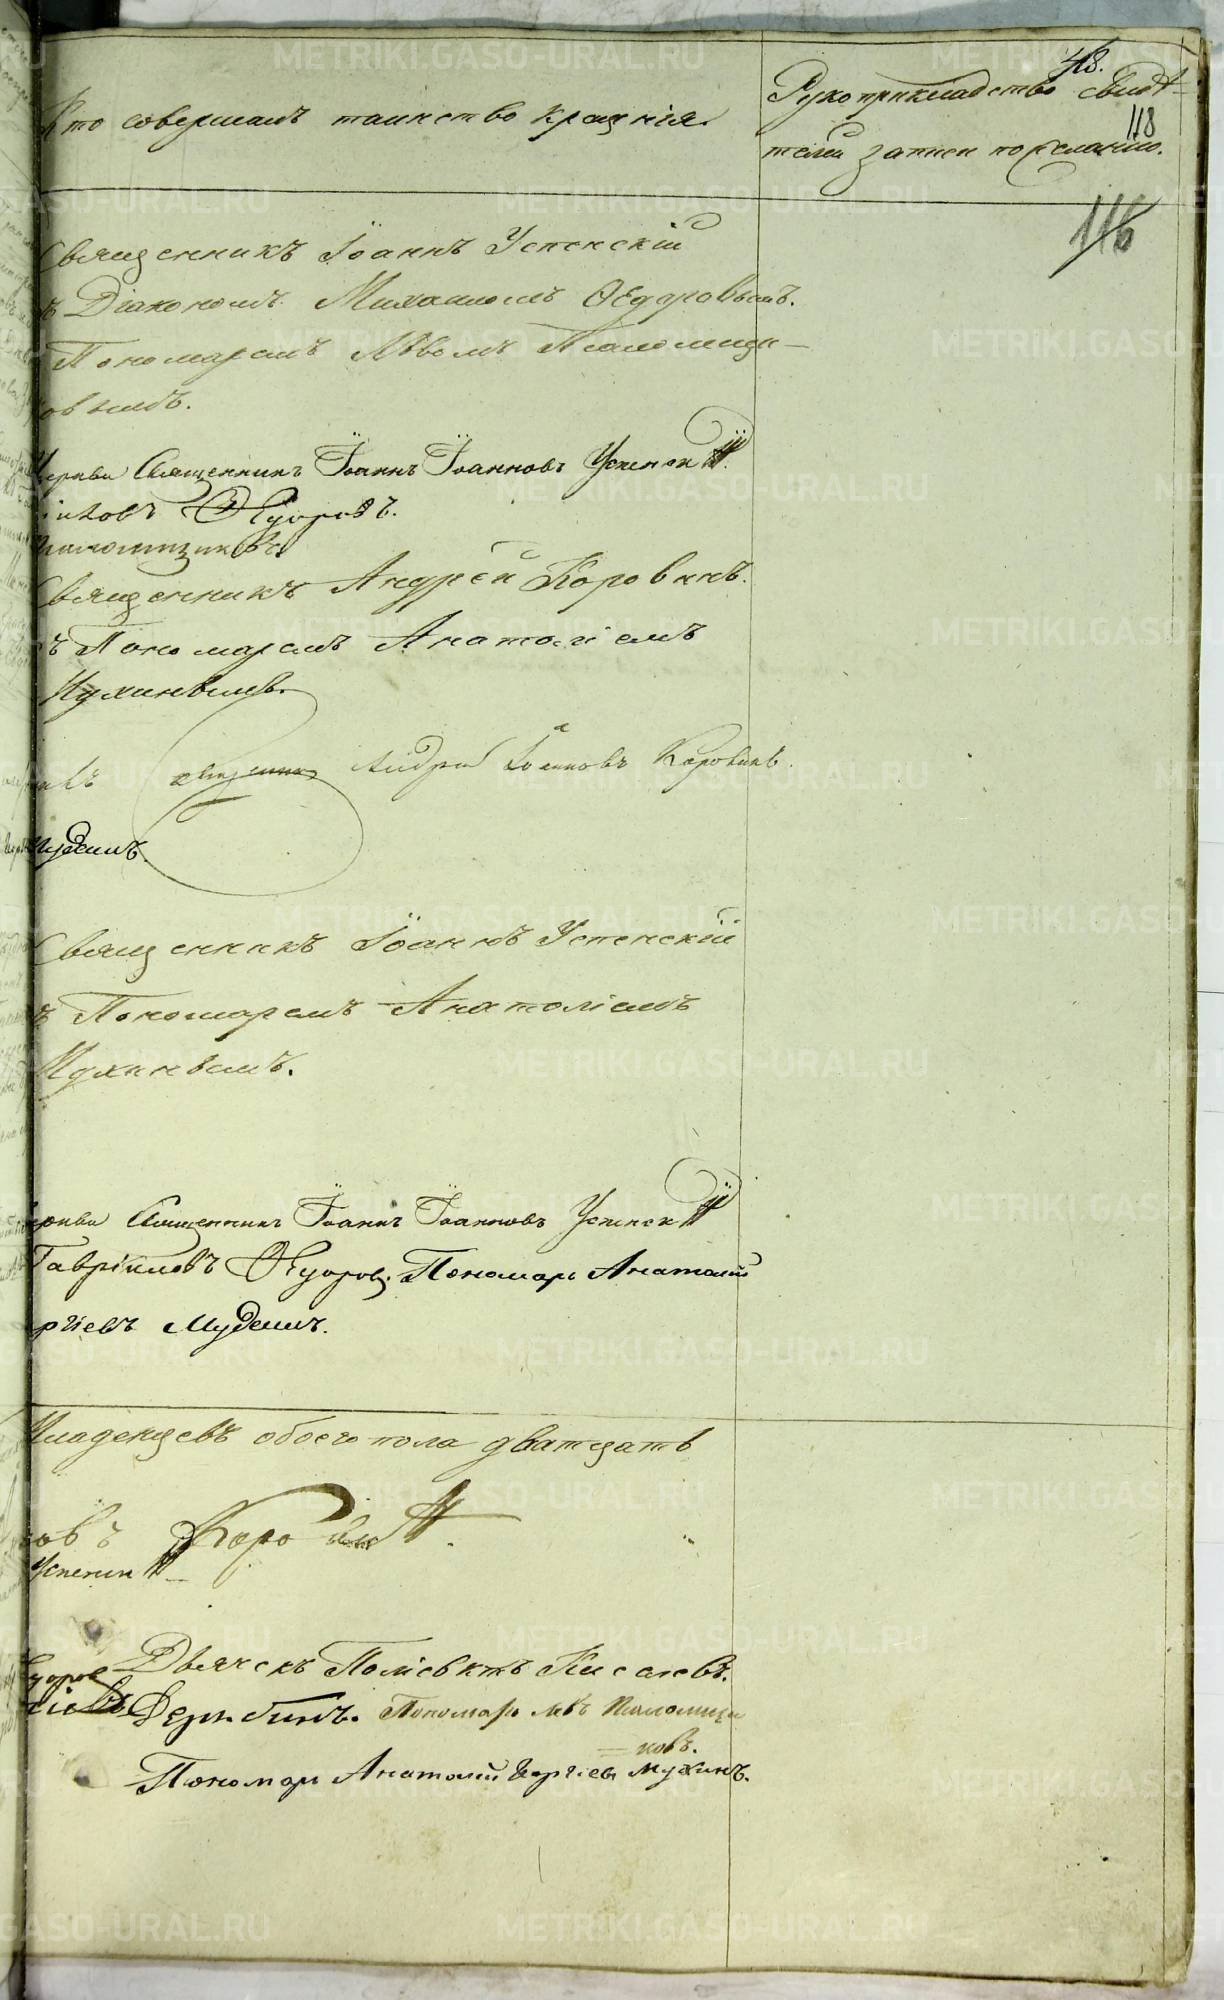 48.
118
116
Кто совершалъ таинство крещенія.
Рукоприкладство свидѣ-
телей записи по желанію.
Священникъ Іоаннъ Успенскій
съ Діакономъ Михаиломъ Ѳедоровымъ.
Пономаремъ Львомъ Псаломщи-
ковымъ.
Церкви Священникъ Іоаннъ Іоанновъ Успенскій.
Ѳедоровъ.
Псаломщиковъ.
Священникъ Андрей Коровинъ.
съ Пономаремъ Анатоліемъ
Мухинымъ.
Священникъ Андрей Іоанновъ Коровинъ.
Священникъ Іоаннъ Успенскій
съ Пономаремъ Анатоліемъ
Мухинымъ.
Церкви Священникъ Іоаннъ Іоанновъ Успенскій
Гавриловъ Ѳедоровъ. Пономарь Анатолій
ргіевъ Мухинъ.
Младенцевъ обоего пола дватцать
новъ Коровинъ.
Успенскій
Дьячекъ Киселевъ.
Дерябинъ. Пономарь Левъ Псаломщи
ковъ.
Пономарь Анатолій Георгіевъ Мухинъ.
METRIKI.GASO-URAL.RU